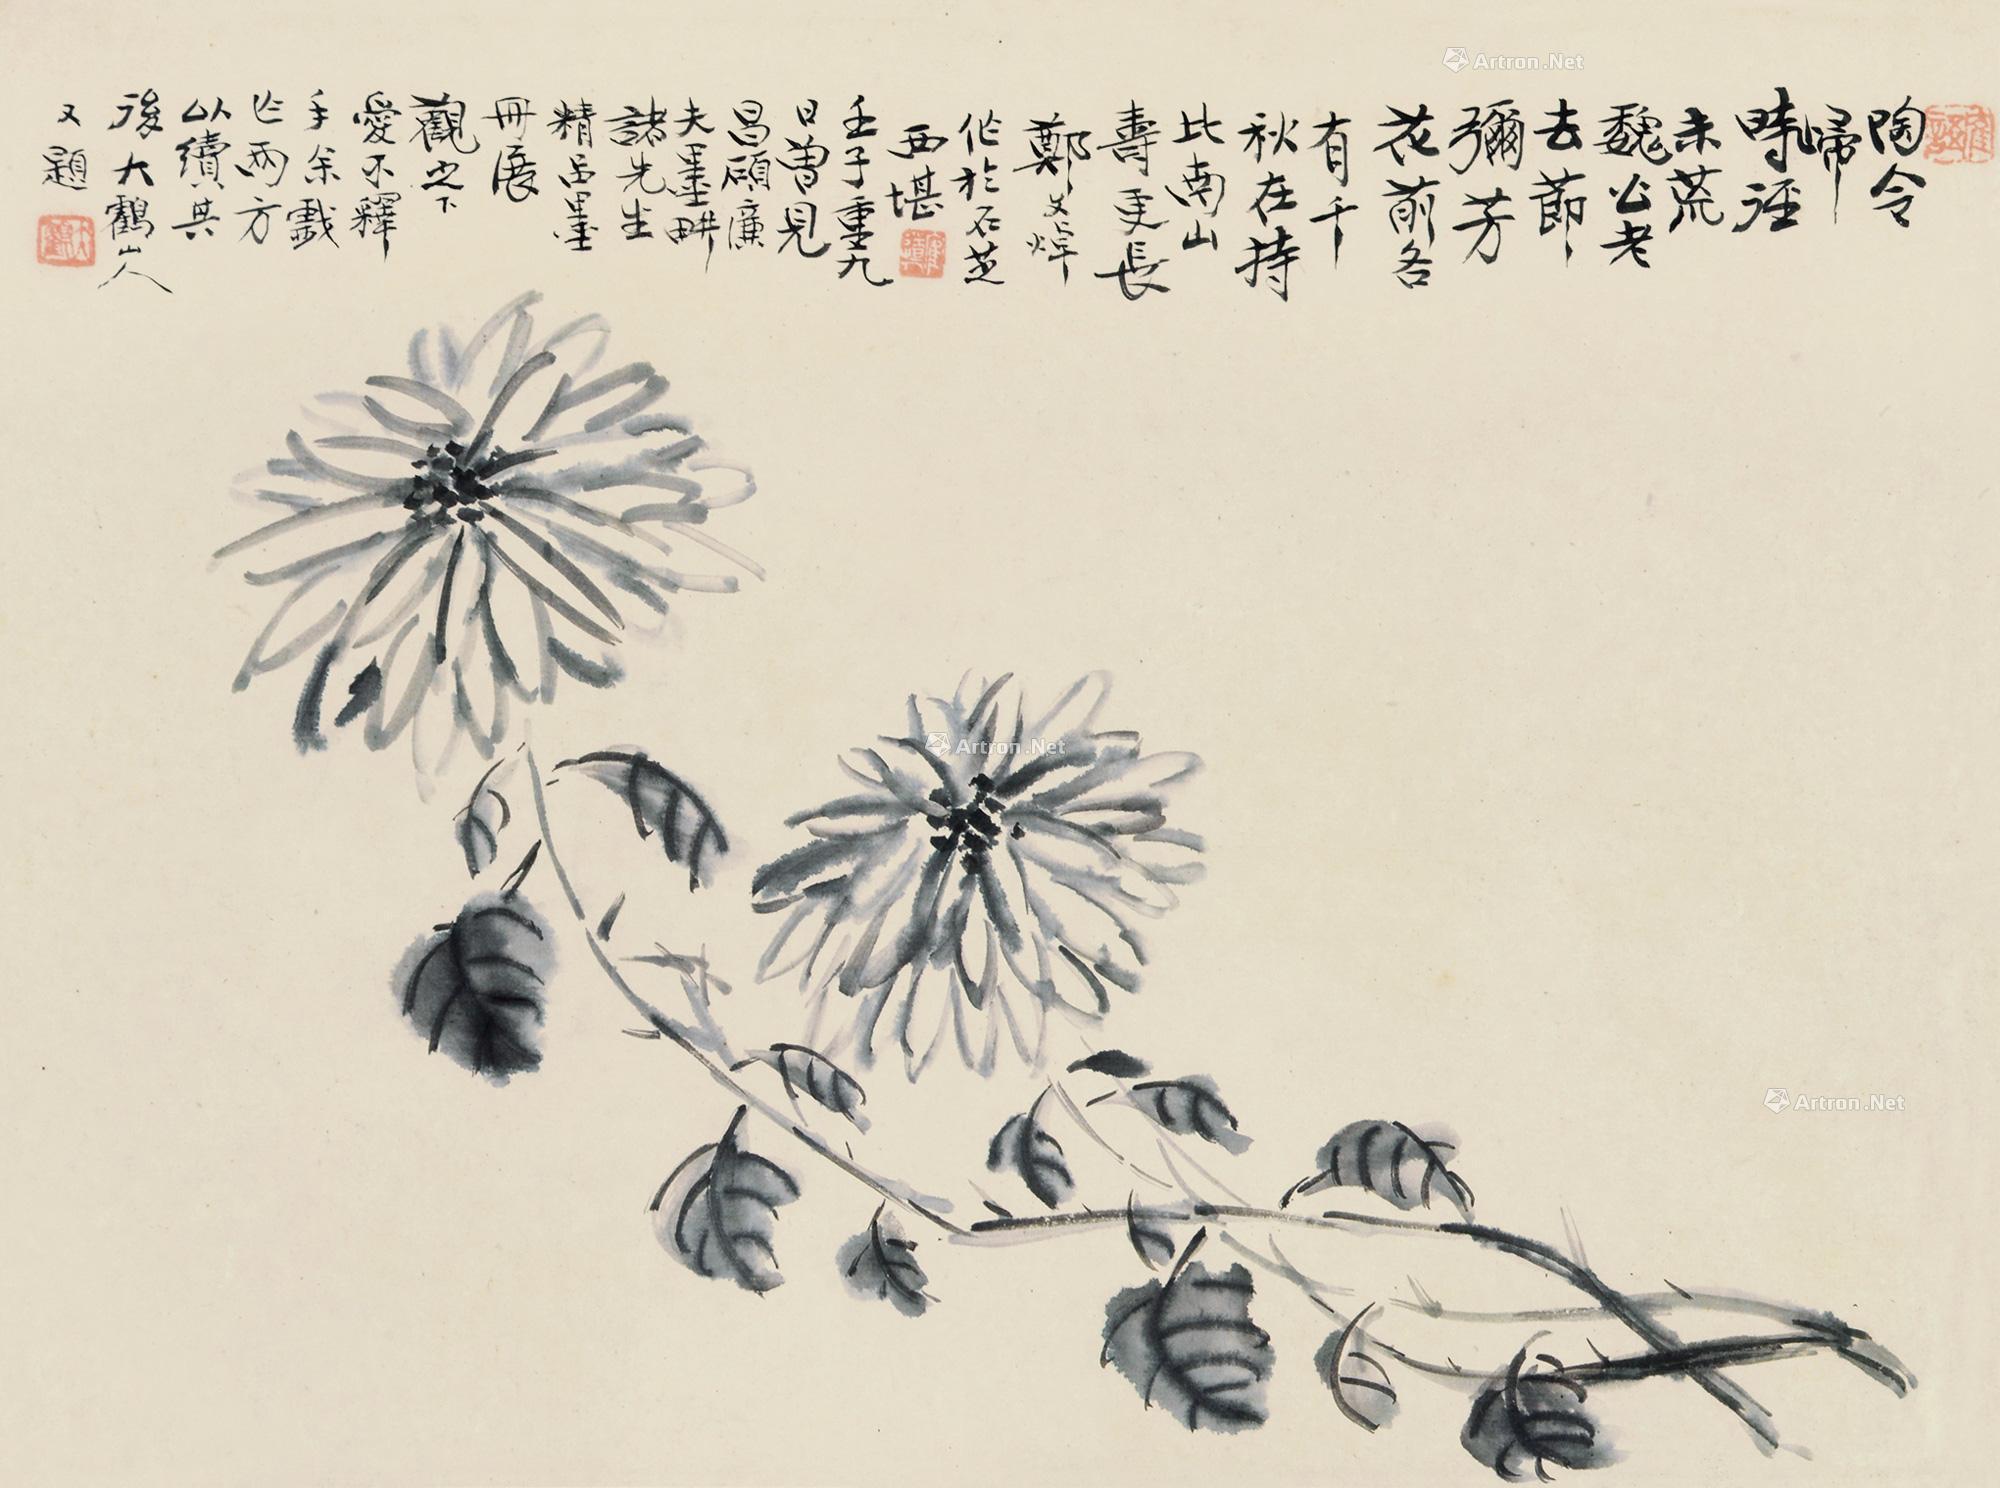 陶令
歸
時徑
未荒
魏公老
去節
彌芳
花前各
有千
秋在持
比南山
壽更長
鄭文焯
作於石芝
西堪
壬子重九
日曾見
昌碩廉
夫墨畊
諸先生
精品墨
冊展
觀之下
愛不釋
手余戲
作兩方
以續其
後大鶴山人
又題
Artron.Net
Artron.Net
Artron.Net